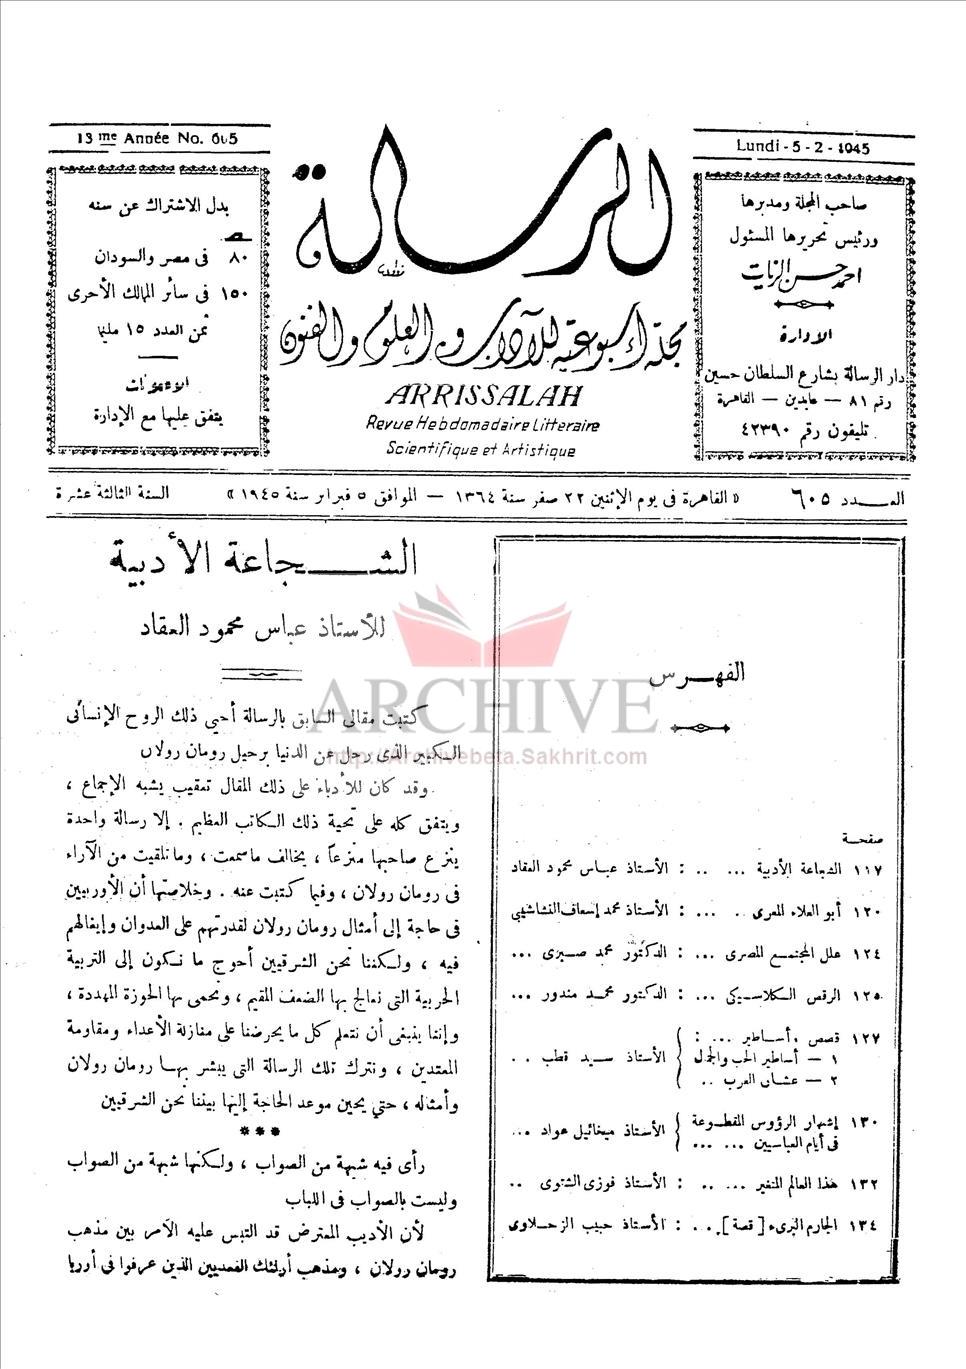 13 me Année No. 605
Lundi - 5 - 2 - 1945
بدل الاشتراك عن سنه
٨٠ فى مصر والسودان
١٥٠ فى سائر الممالك الأخرى
ثمن العدد ١٥ مليما
الإعلانات
يتفق عليها مع الإدارة
الرسالة
مجلة أسبوعية للآداب والعلوم والفنون
ARRISSALAH
Revue Hebdomadaire Litteraire
Scientifique et Artistique
صاحب المجلة ومديرها
ورئيس تحريرها المسئول
احمد حسن الزيات
الادارة
دار الرسالة بشارع السلطان حسين
رقم ٨١ — عابدين — القاهرة
تليفون رقم ٤٢٣٩٠
العـــدد ٦٠٥
« القاهرة فى يوم الإثنين ٢٢ صفر سنة ١٣٦٤ — الموافق ٥ فبراير سنة ١٩٤٥ »
السنة الثالثة عشرة
الفهـرس
صفحـة
١١٧ الشجاعة الأدبية ... .. : الأستاذ عباس محمود العقاد
١٢٠ أبو العلاء المعرى .. ... : الأستاذ محمد إسعاف النشاشيبي
١٢٤ علل المجتمع المصرى ... : الدكتور محمد صبرى ...
١٢٥ الرقص الكلاسيكى ... : الدكتور محمد مندور ...
١٢٧ قصص وأساطير ... ... :
١ — أساطير الحب والجمال
الأستاذ سيد قطب . .
٢ — عشاق العرب ..
١٣٠ إشهار الرؤوس المقطوعة
فى أيام العباسيين ... ...
الأستاذ ميخائيل عواد ...
١٣٢ هذا العالم المتغير ... .. : الأستاذ فوزى الشتوى ..
١٣٤ الجارم البرىء [ قصة ] ... : الأستاذ حبيب الزحلاوى
الشـجاعة الأدبية
للأستاذ عباس محمود العقاد
كتبت مقالى السابق بالرسالة أحيى ذلك الروح الإنسانى
الكبير الذى رحل عن الدنيا برحيل رومان رولان
وقد كان للأدباء على ذلك المقال تعقيب يشبه الإجماع ،
ويتفق كله على تحية ذلك الكاتب العظيم . إلا رسالة واحدة
ينزع صاحبها منزعاً ، يخالف ما سمعت ، وما تلقيت من الآراء
فى رومان رولان ، وفيما كتبت عنه . وخلاصتها أن الأوربيين
فى حاجة إلى أمثال رومان رولان لقدرتهم على العدوان وإيغالهم
فيه ، ولكننا نحن الشرقيين أحوج ما نكون إلى التربية
الحربية التى نعالج بها الضعف المقيم ، ونحمى بها الحوزة المهددة ،
وإننا ينبغى أن نتعلم كل ما يحرضنا على منازلة الأعداء ومقاومة
المعتدين ، ونترك تلك الرسالة التى يبشر بها رومان رولان
وأمثاله ، حتى يحين موعد الحاجة إليها بيننا نحن الشرقيين
***
رأى فيه شبهة من الصواب ، ولكنها شبهة من الصواب
وليست بالصواب فى اللباب
لأن الأديب المعترض قد التبس عليه الأمر بين مذهب
رومان رولان ، ومذهب أولئك القعديين الذين عرفوا فى أوربا
ARCHIVE
http://Archivebeta.Sakhrit.com